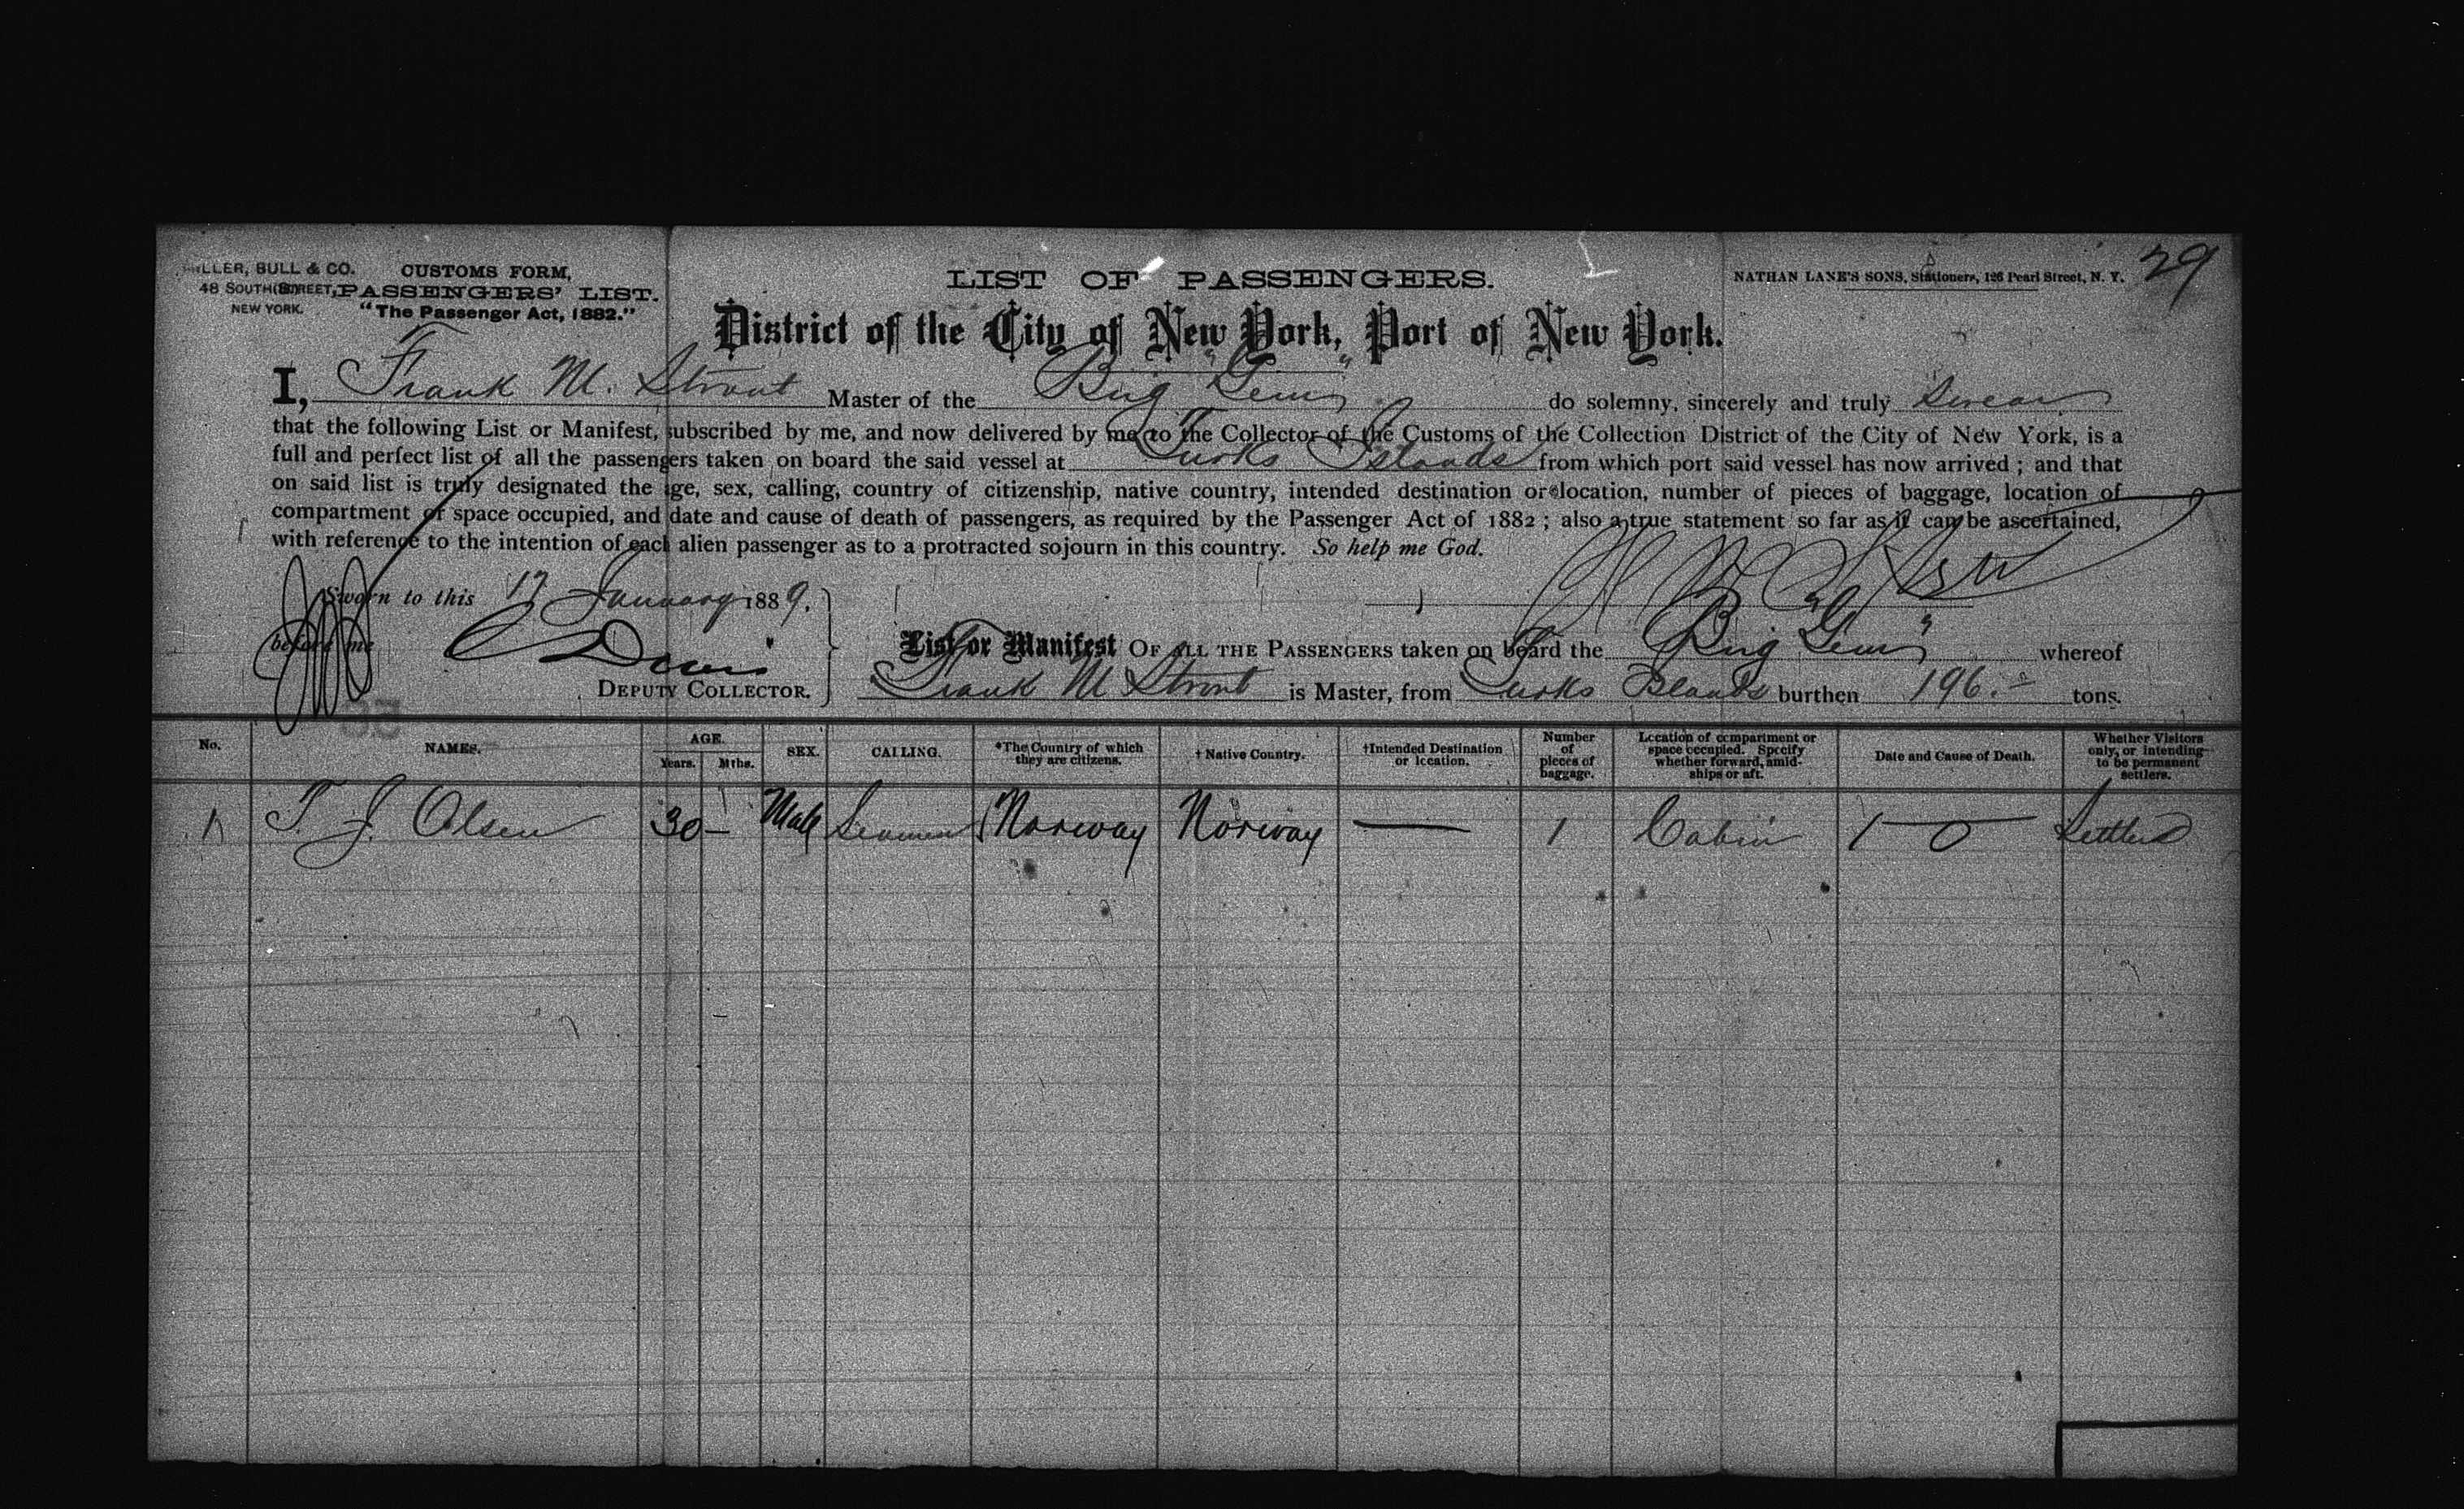 MILLER, BULL & CO. CUSTOMS FORM,
48 SOUTH STREET, PASSENGERS' LIST.
NEW YORK. "The Passenger Act, 1882."
LIST OF PASSENGERS.
NATHAN LANE'S SONS, Stationers, 126 Pearl Street, N. Y. 29
District of the City of New York, Port of New York.
I, Frank M. Strout Master of the Brig "Gem" do solemny, sincerely and truly Swear
that the following List or Manifest, subscribed by me, and now delivered by me to the Collector of the Customs of the Collection District of the City of New York, is a
full and perfect list of all the passengers taken on board the said vessel at Turks Islands from which port said vessel has now arrived; and that
on said list is truly designated the age, sex, calling, country of citizenship, native country, intended destination or location, number of pieces of baggage, location of
compartment or space occupied, and date and cause of death of passengers, as required by the Passenger Act of 1882; also a true statement so far as it can be ascertained,
with reference to the intention of each alien passenger as to a protracted sojourn in this country. So help me God.
Sworn to this 17 January 1889.
before me
DEPUTY COLLECTOR.
List or Manifest OF ALL THE PASSENGERS taken on board the Brig Gem" whereof
Frank M Strout is Master, from Turks Islands burthen 196. tons.
No. NAMES. AGE. Years. Mths. SEX. CALLING. *The Country of which they are citizens. † Native Country. †Intended Destination or location. Number of pieces of baggage. Location of compartment or space occupied. Specify whether forward, amidships or aft. Date and Cause of Death. Whether Visitors only, or intending to be permanent settlers.
1 T. J. Olsen 30 — Male Seaman Norway Norway — 1 Cabin Settler